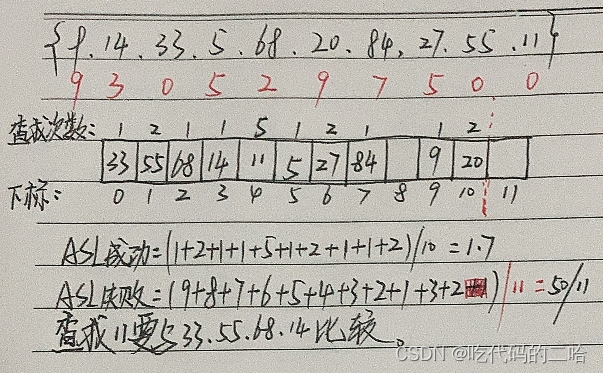 {9.14.33.5.68.20.84,27.55.11}
9 3 0 5 2 9 7 5 0 0
查找次数: 1 2 1 1 5 1 2 1 1 2
33 55 68 14 11 5 27 84 9 20
下标: 0 1 2 3 4 5 6 7 8 9 10 11
ASL成功=(1+2+1+1+5+1+2+1+1+2)/10=1.7
ASL失败=(9+8+7+6+5+4+3+2+1+3+2)/11=50/11
查找11要与33.55.68.14比较。
CSDN @吃代码的二哈